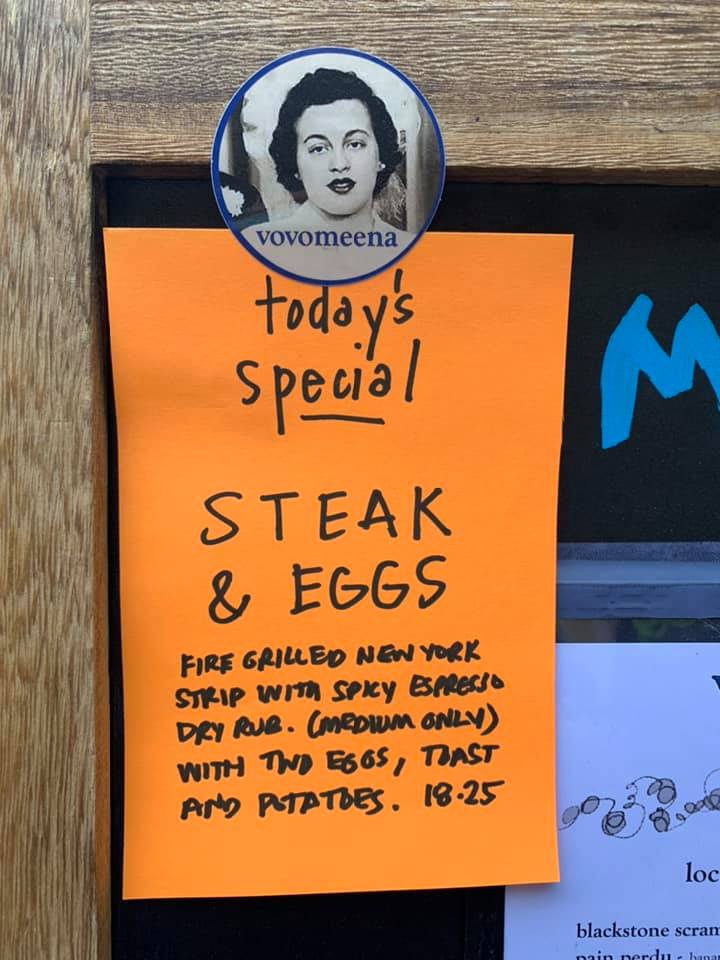 vovomeena
today's
special
STEAK
& EGGS
FIRE GRILLED NEW YORK
STRIP WITH SPICY ESPRESSO
DRY RUB. (MEDIUM ONLY)
WITH TWO EGGS, TOAST
AND POTATOES. 18.25
M
loc
blackstone scram
pain perdu - bana